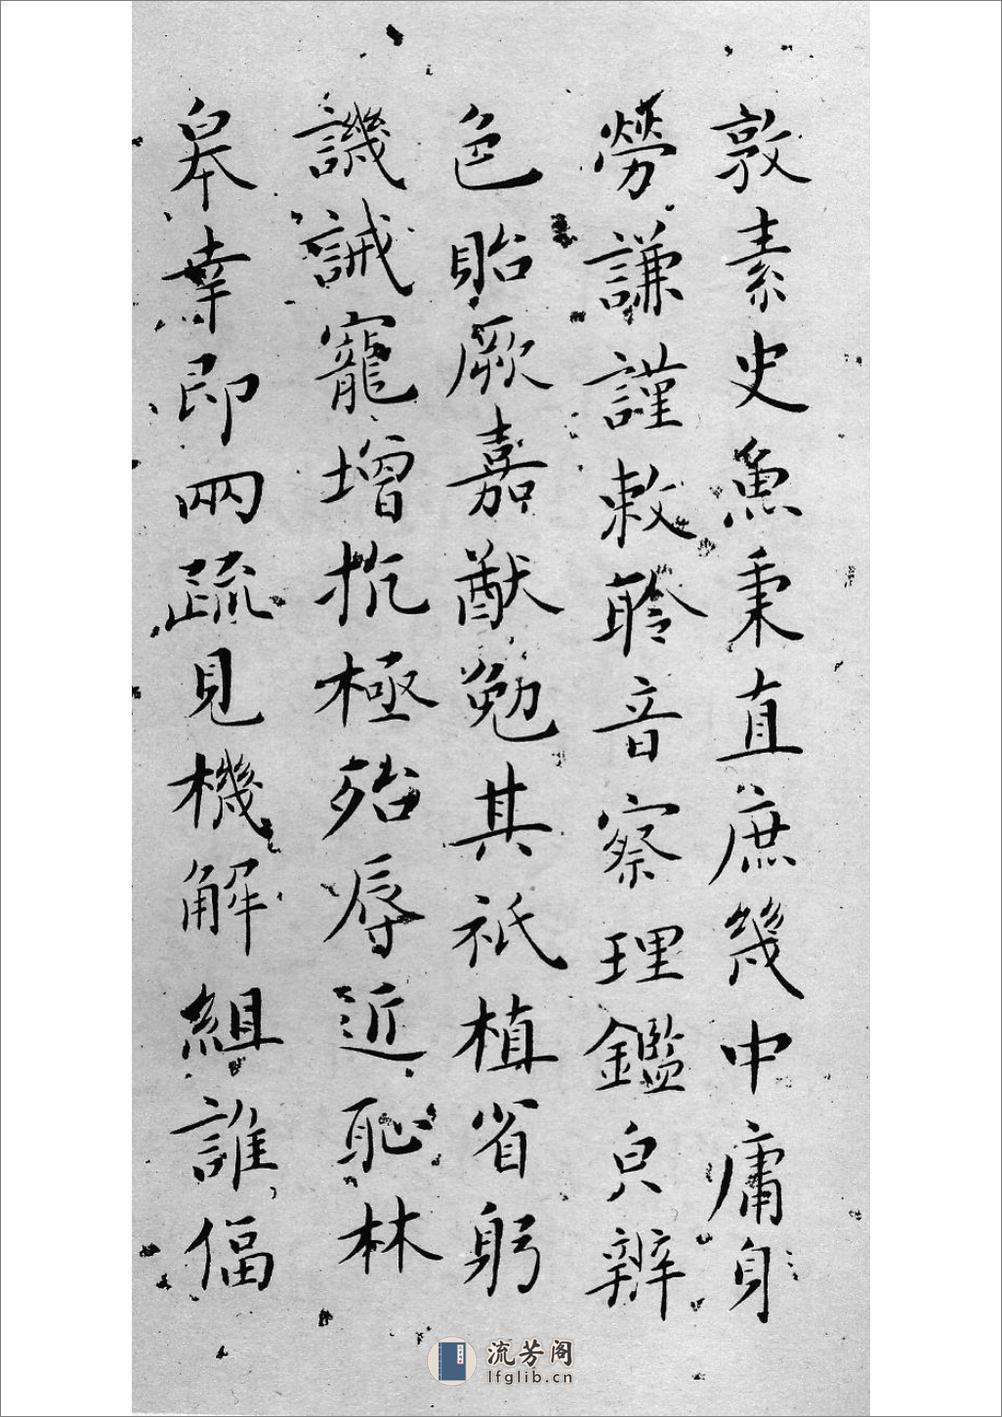 敦素史魚秉直庶幾中庸身
勞謙謹敕聆音察理鑑皃辨
色貽厥嘉猷勉其祇植省躬
譏誡寵增抗極殆辱近恥林
皋幸即兩疏見機解組誰偪
流芳阁
lfglib.cn